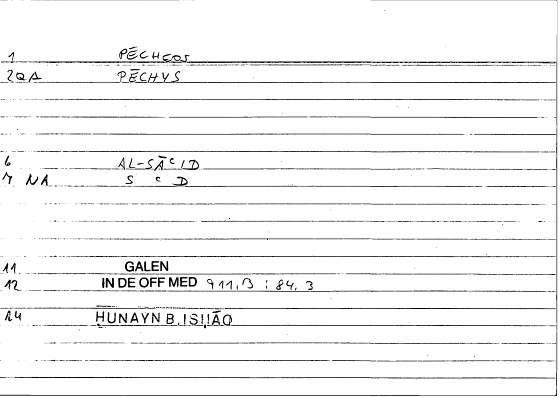 1 PĒCHEOS
2QA PĒCHYS
6 AL-SĀʿID
7 NA S ʿ D
11 GALEN
12 IN DE OFF MED 911,13 : 84,3
14 ḤUNAYN B. ISḤĀQ